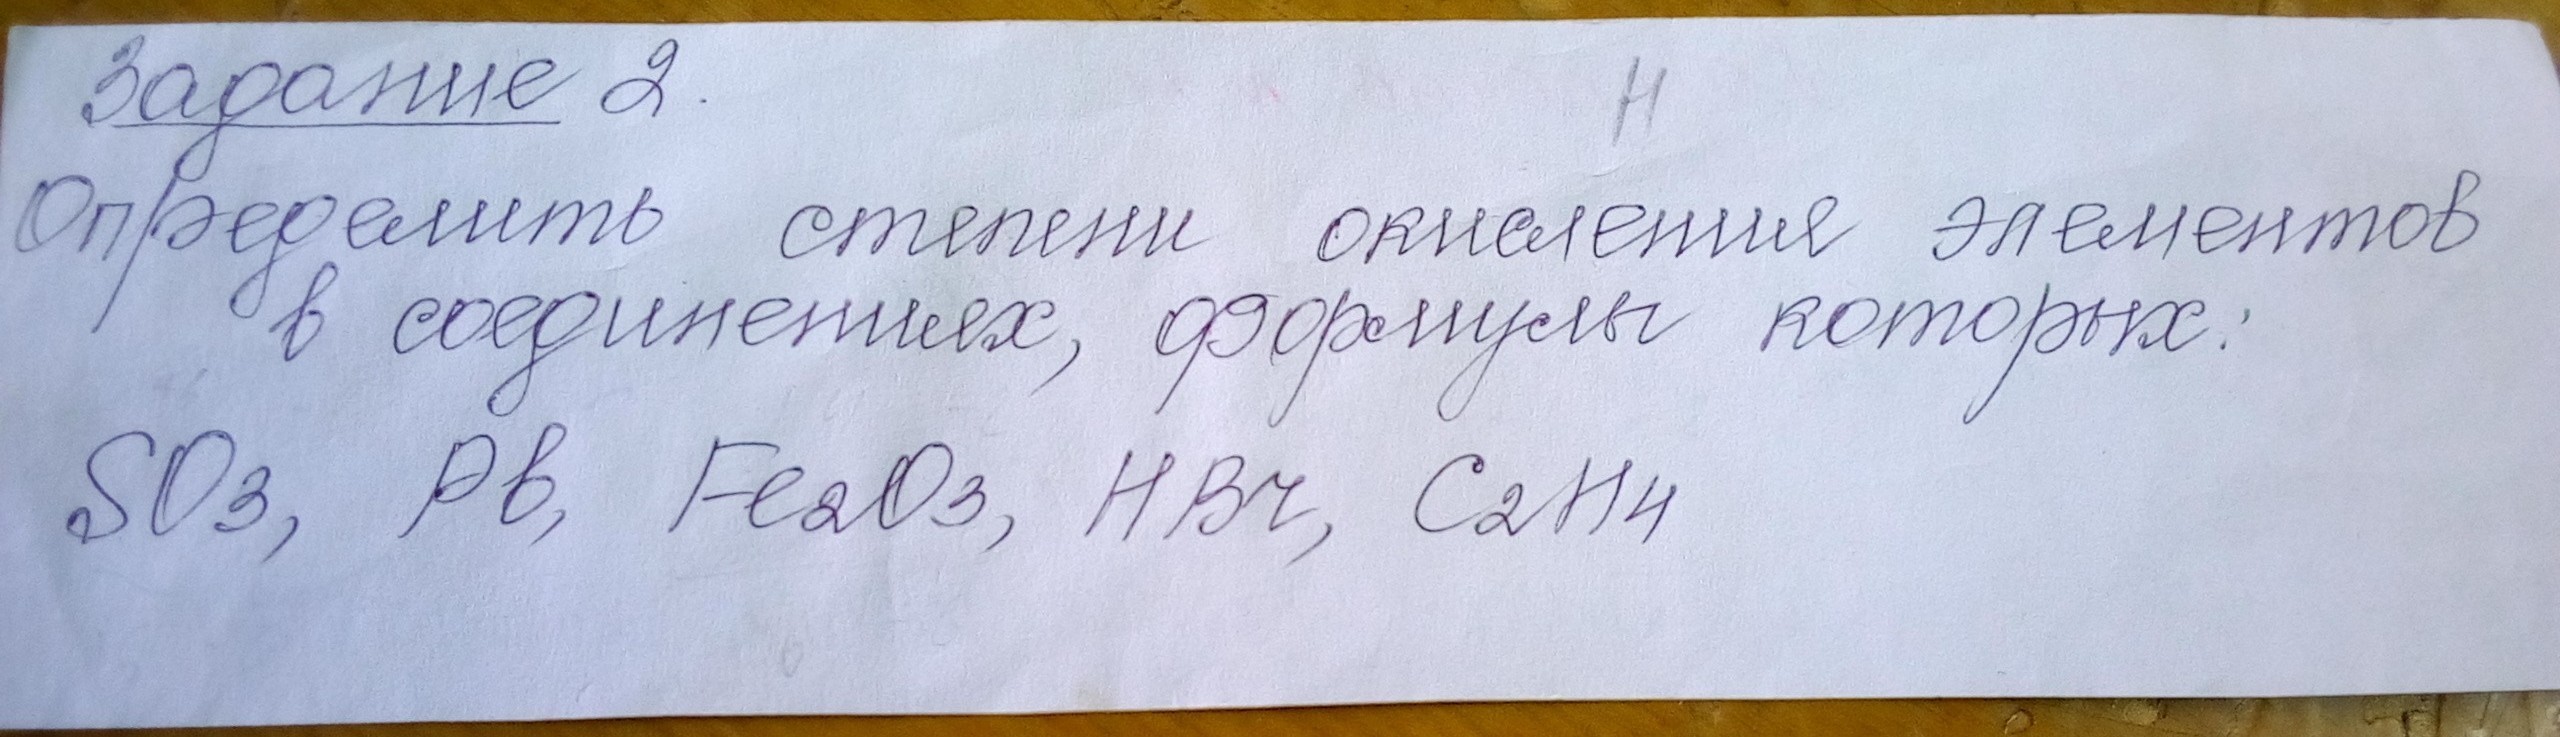 Задание 2.
Н
Определить степени окисления элементов
в соединениях, формулы которых:
SO3, Pb, Fe2O3, HBr, C2H4